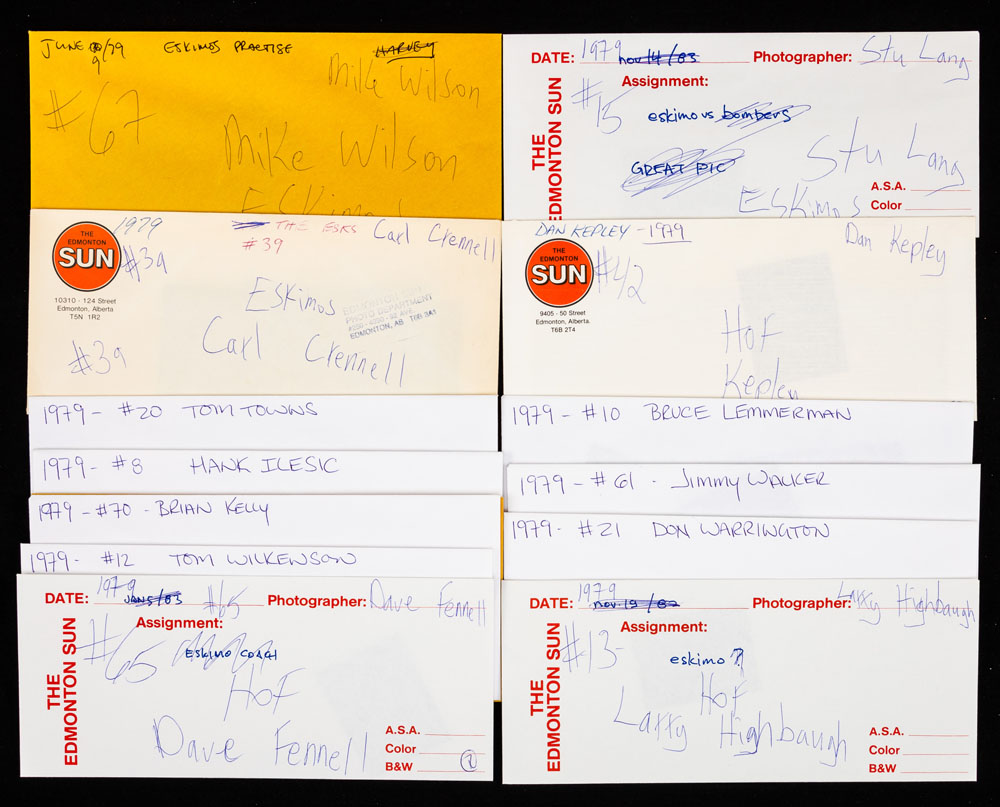 JUNE 9/79 ESKIMOS PRACTISE HARVEY
Mike Wilson
#67
Mike Wilson
Eskimos
DATE: 1979 nov 14/83 Photographer: Stu Lang
Assignment:
#15
eskimo vs bombers
THE EDMONTON SUN
GREAT PIC
Stu Lang
Eskimos
A.S.A.
Color
1979 THE ESKS Carl Crennell
#39
THE EDMONTON SUN
#39
10310 - 124 Street
Edmonton, Alberta
T5N 1R2
Eskimos
PHOTO DEPARTMENT
EDMONTON, AB T6B 3A1
Carl Crennell
#39
DAN KEPLEY - 1979 Dan Kepley
THE EDMONTON SUN
#42
9405 - 50 Street
Edmonton, Alberta.
T6B 2T4
HOF
Kepley
1979 - #20 TOM TOWNS
1979 - #8 HANK ILESIC
1979 - #70 - BRIAN KELLY
1979 - #12 TOM WILKENSON
1979 - #10 BRUCE LEMMERMAN
1979 - #61 - Jimmy WALKER
1979 - #21 DON WARRINGTON
DATE: 1979 JAN 5/83 #65 Photographer: Dave Fennell
Assignment:
#65
ESKIMO COACH
THE EDMONTON SUN
HOF
Dave Fennell
A.S.A.
Color
B&W 2
DATE: 1979 nov 19/82 Photographer: Larry Highbaugh
Assignment:
#13
eskimo ?
THE EDMONTON SUN
HOF
Larry Highbaugh
A.S.A.
Color
B&W